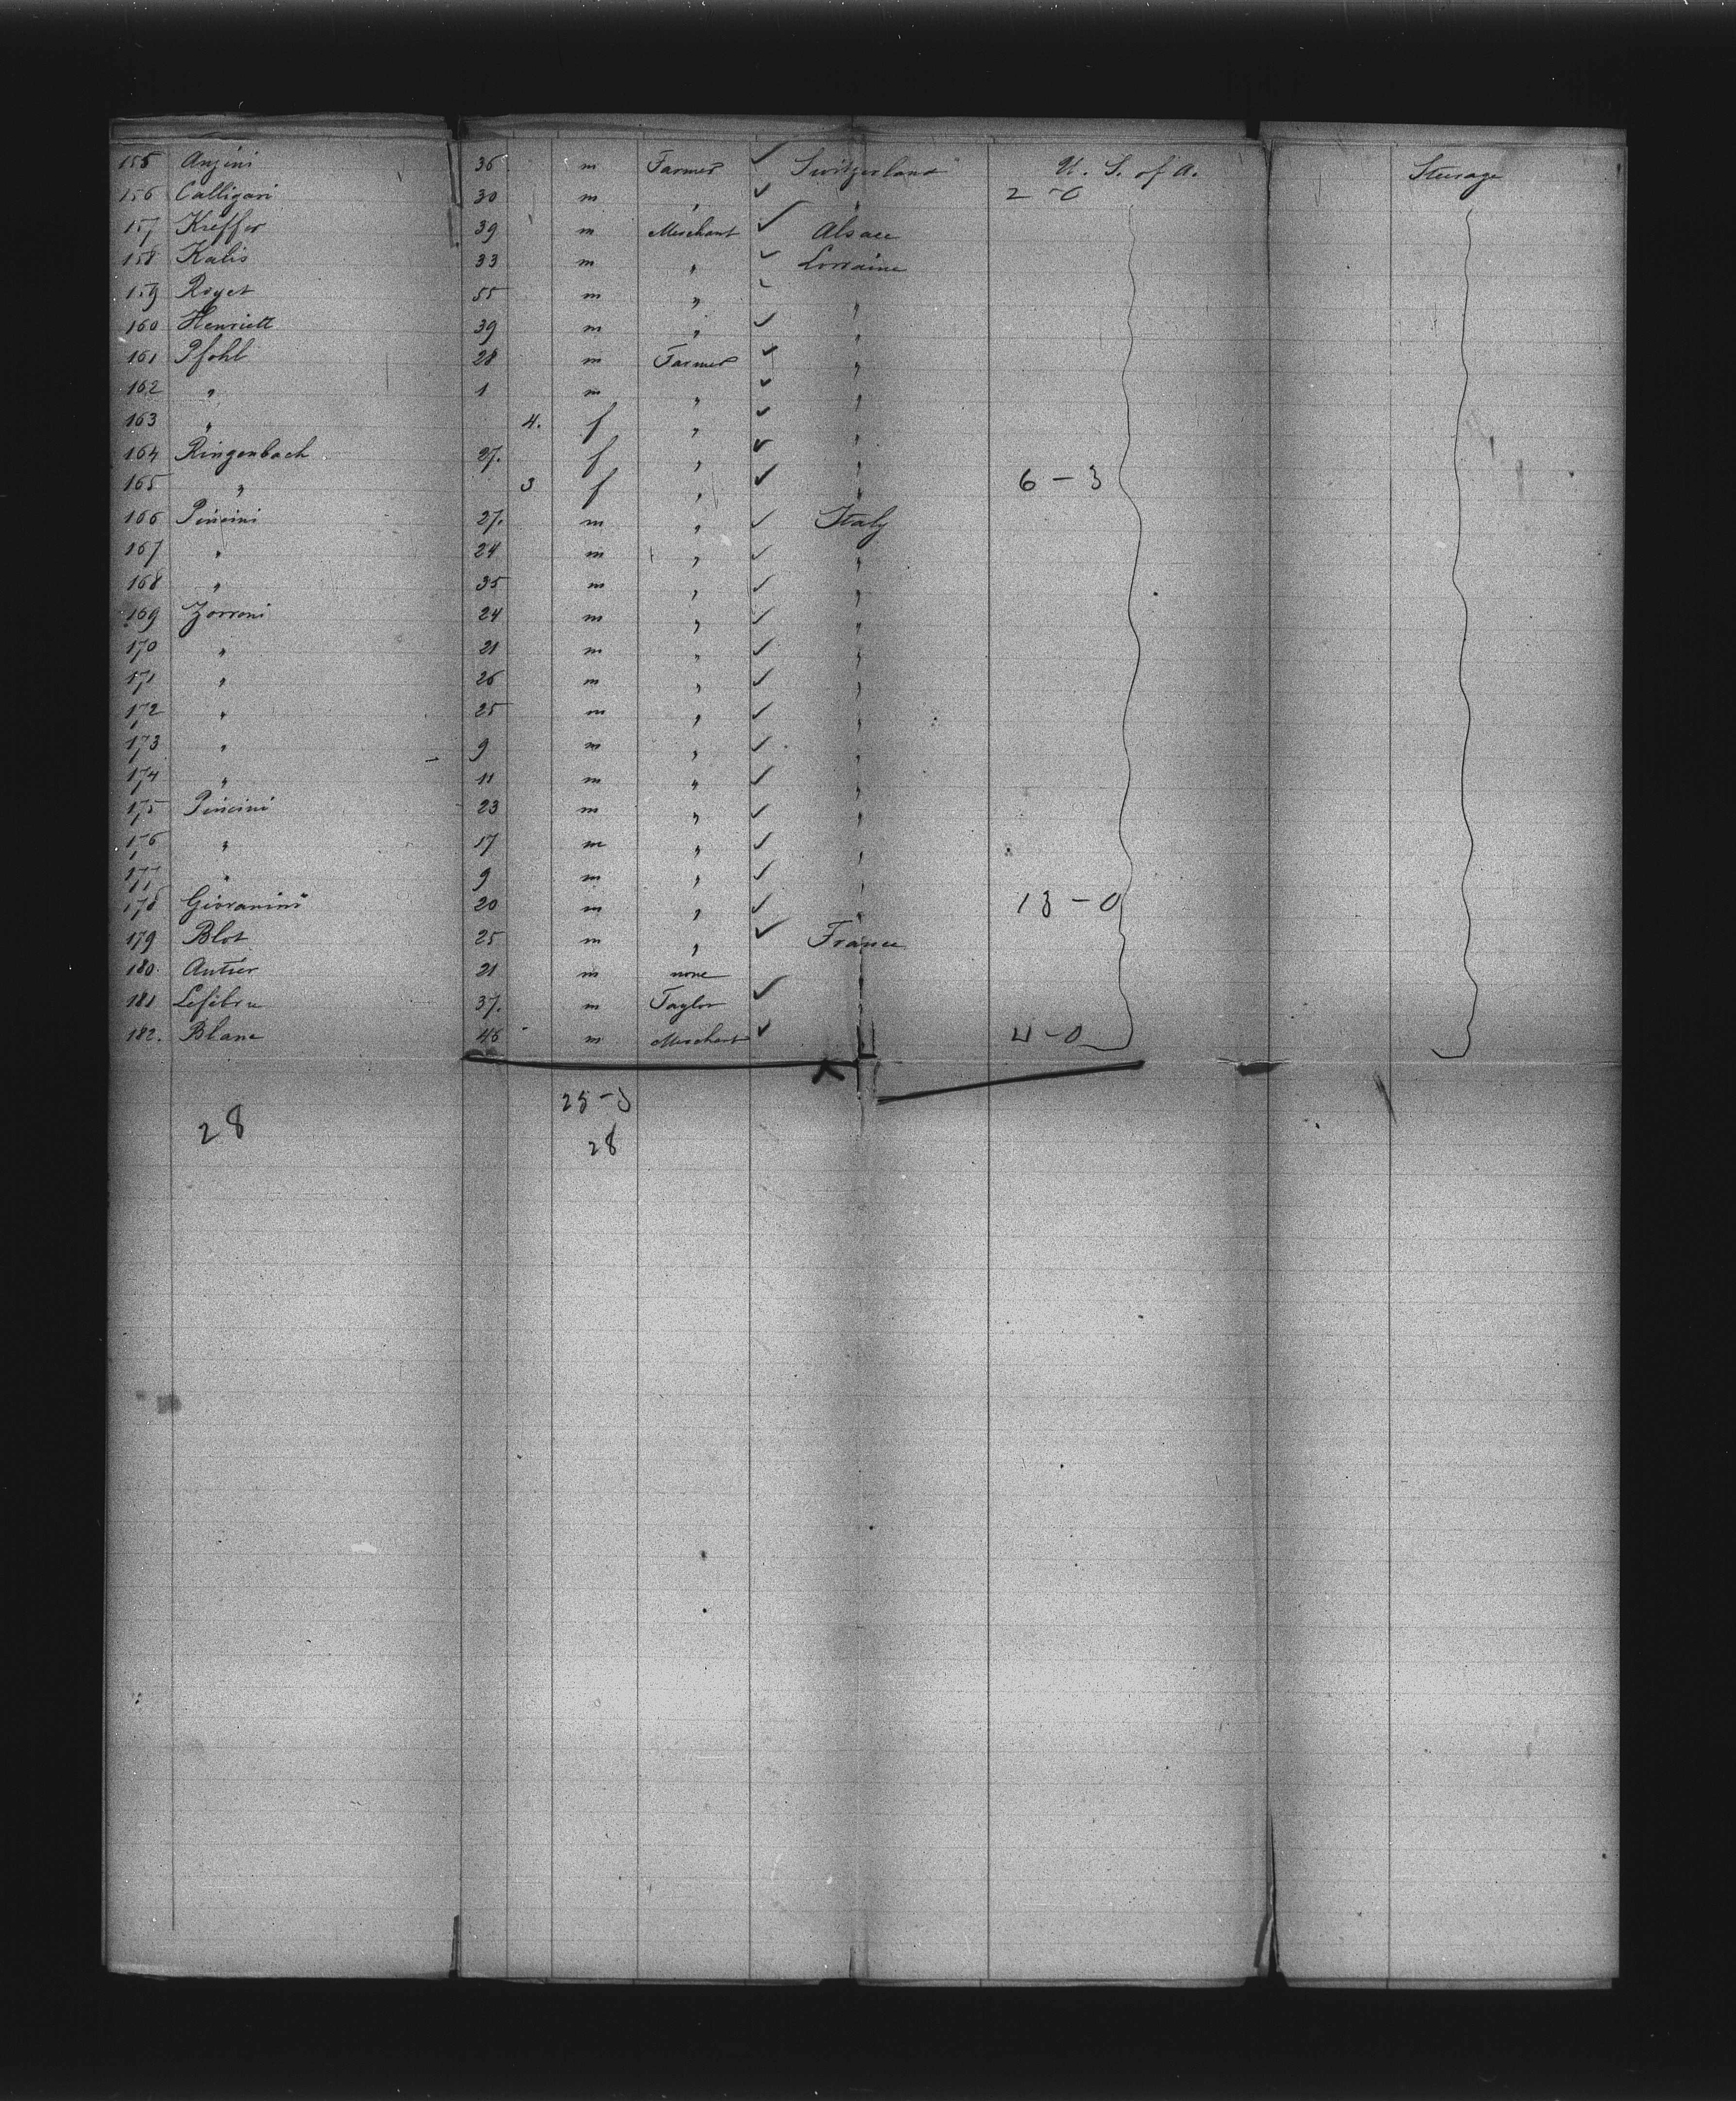 155 Anzini 36 m Farmer ✓ Switzerland U. S. of A. Steerage
156 Calligari 30 m " ✓ " 2-0
157 Kreffer 39 m Merchant ✓ Alsace
158 Kalis 33 m " ✓ Lorraine
159 Royet 55 m " ✓ "
160 Henriett 39 m " ✓ "
161 Pfohl 28 m Farmer ✓ "
162 " 1 m " ✓ "
163 " 4. f " ✓ "
164 Ringenbach 27. f " ✓ "
165 " 3 f " ✓ " 6-3
166 Pincini 27. m " ✓ Italy
167 " 24 m " ✓ "
168 " 35 m " ✓ "
169 Zorroni 24 m " ✓ "
170 " 21 m " ✓ "
171 " 26 m " ✓ "
172 " 25 m " ✓ "
173 " 9 m " ✓ "
174 " 11 m " ✓ "
175 Pincini 23 m " ✓ "
176 " 17 m " ✓ "
177 " 9 m " ✓ "
178 Giovanini 20 m " ✓ " 13-0
179 Blot 25 m " ✓ France
180. Antier 21 m none "
181 Lefebre 37. m Taylor ✓ "
182. Blanc 46 m Merchant ✓ " 4-0
25-3
28 28